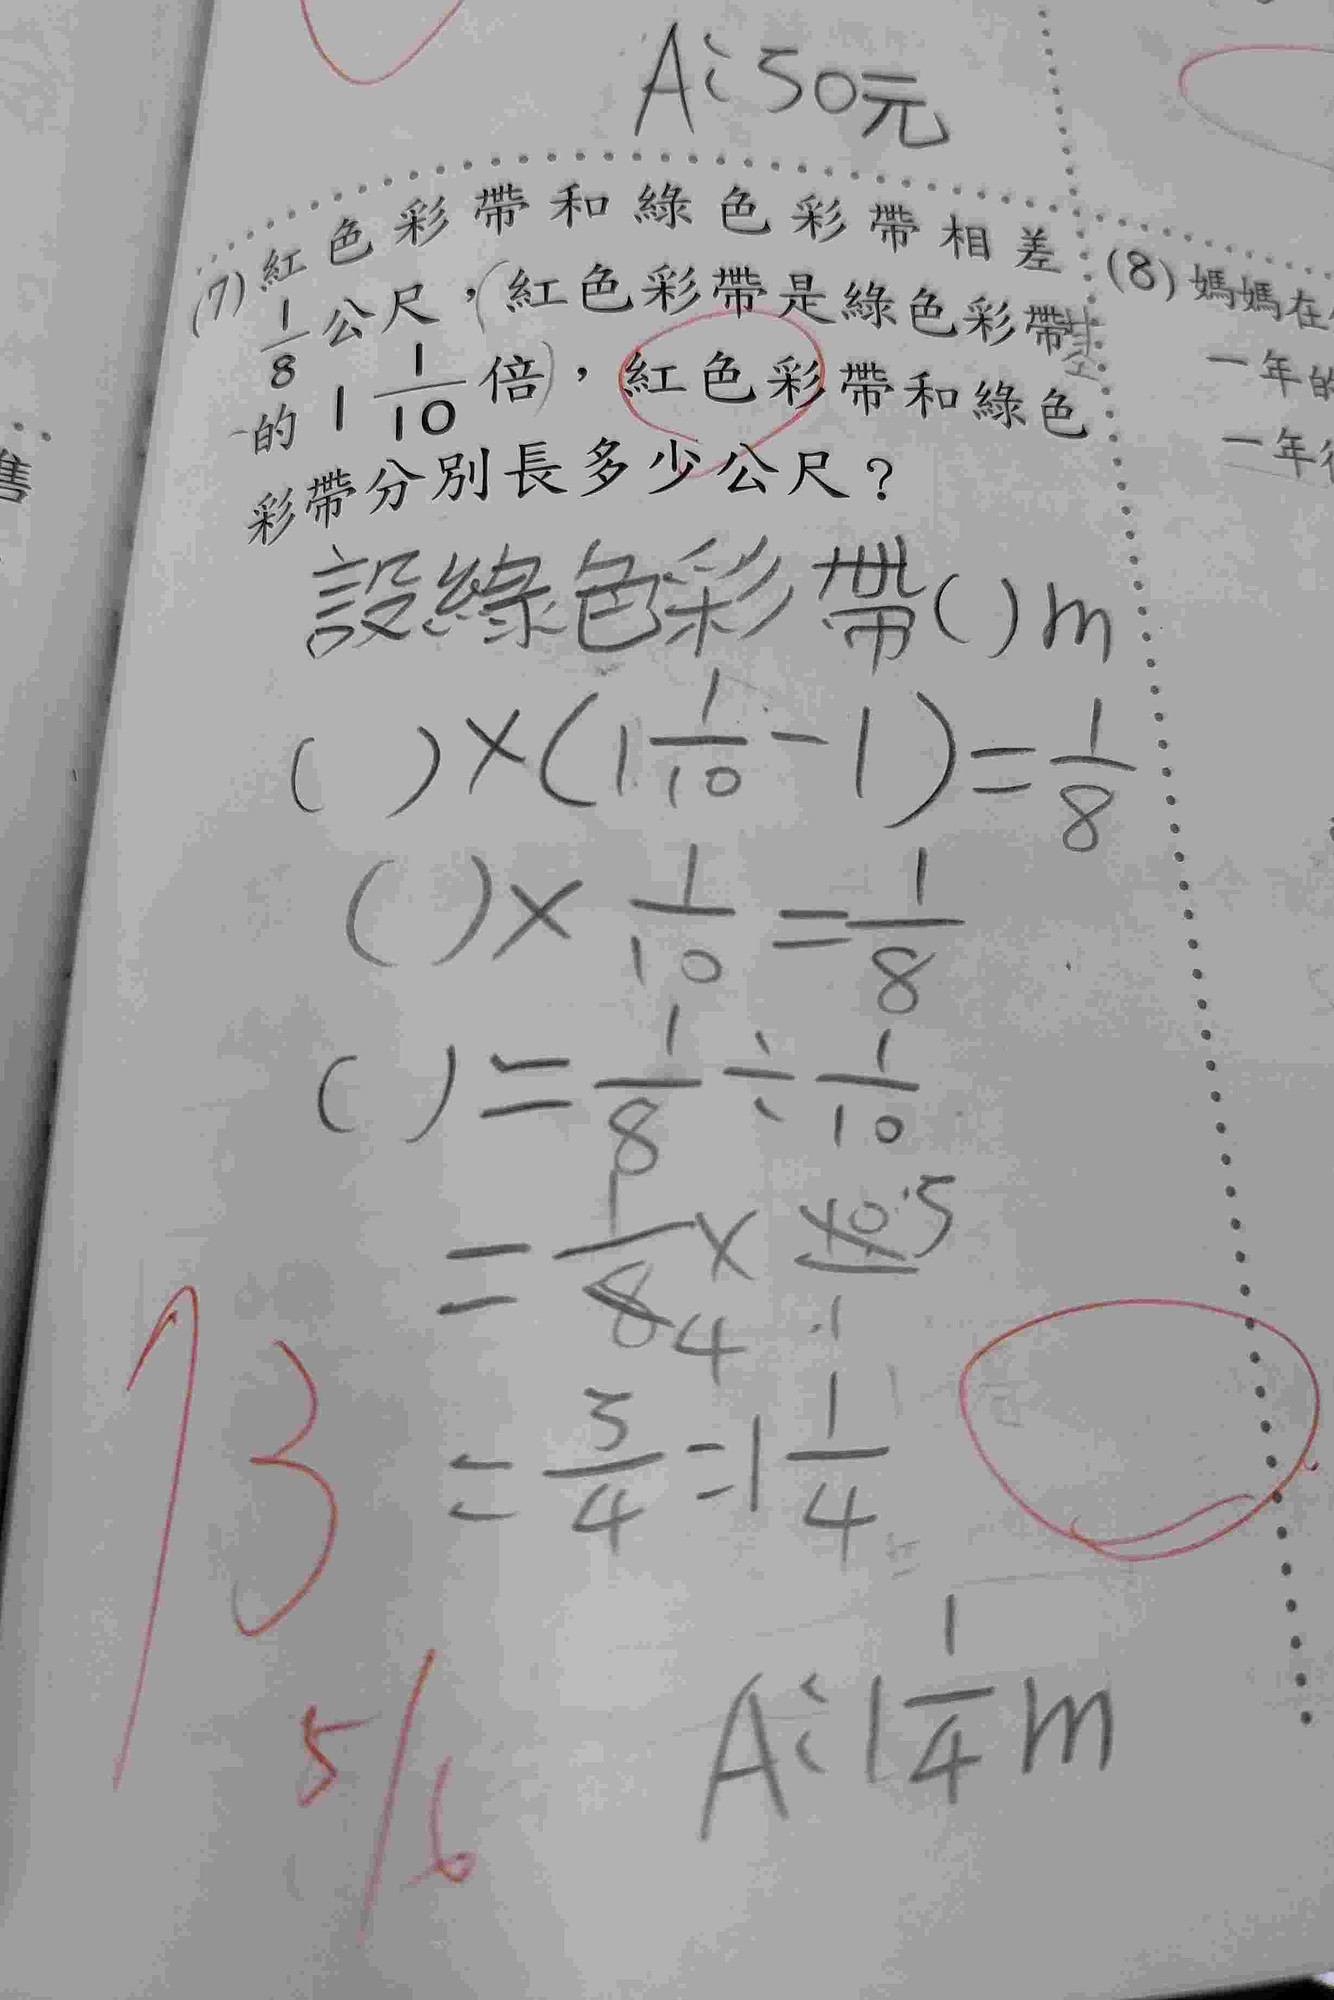 A:50元
(7)紅色彩帶和綠色彩帶相差
1/8公尺，(紅色彩帶是綠色彩帶
的1 1/10倍)，紅色彩帶和綠色
彩帶分別長多少公尺？
設綠色彩帶( )m
( )×(1 1/10-1)=1/8
( )×1/10=1/8
( )=1/8÷1/10
=1/8 4×10 5/1
=5/4=1 1/4
A:1 1/4m
13
5/6
(8)媽媽在
一年的
一年
售